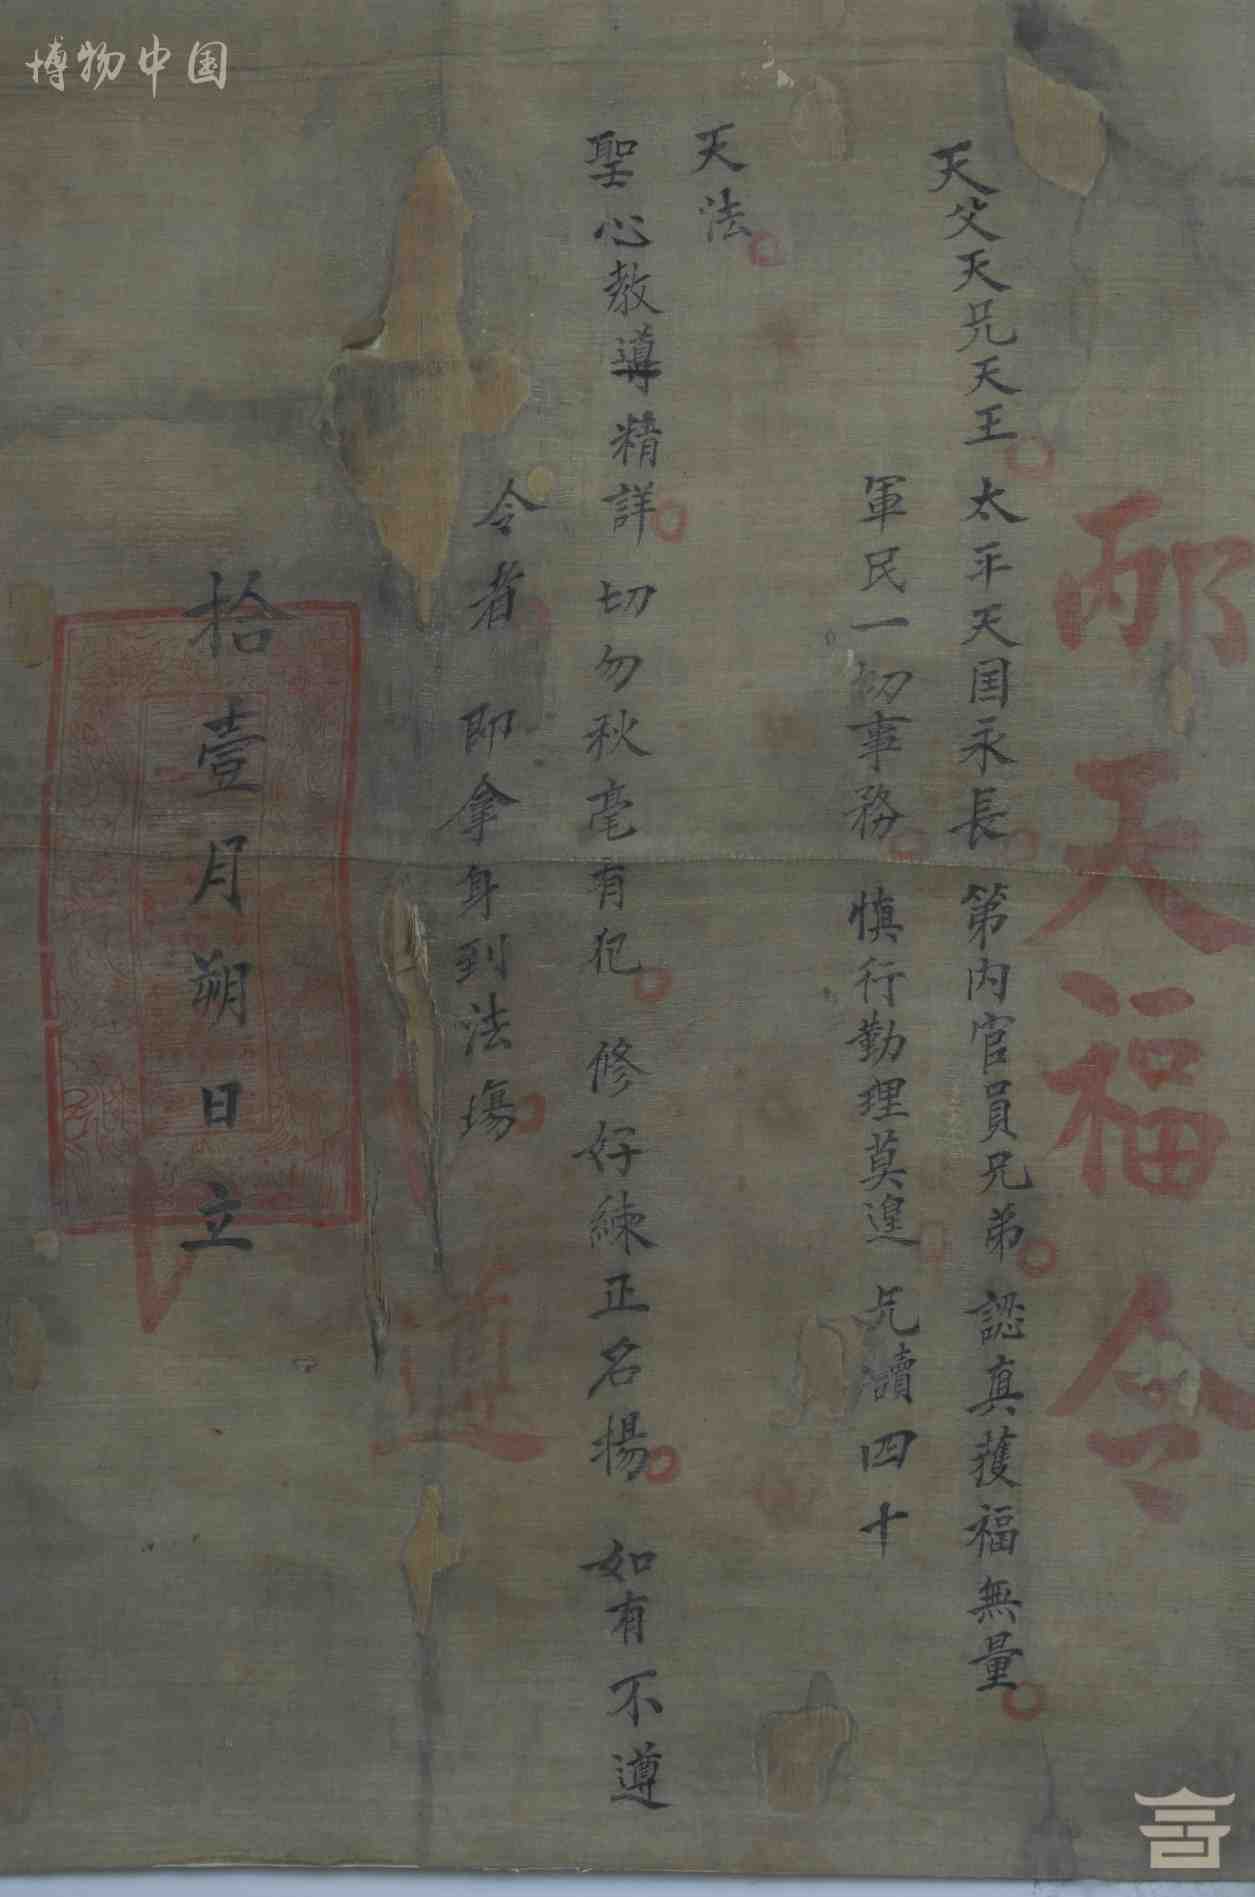 博物中国
邴天福令
天父天兄天王太平天囯永長第內官員兄弟認真獲福無量
軍民一切事務慎行勤理莫遑凡瀆四十
天法
聖心教導精詳切勿秋毫有犯修好練正名揚如有不遵
令者即拿身到法場
遵
拾壹月朔日立